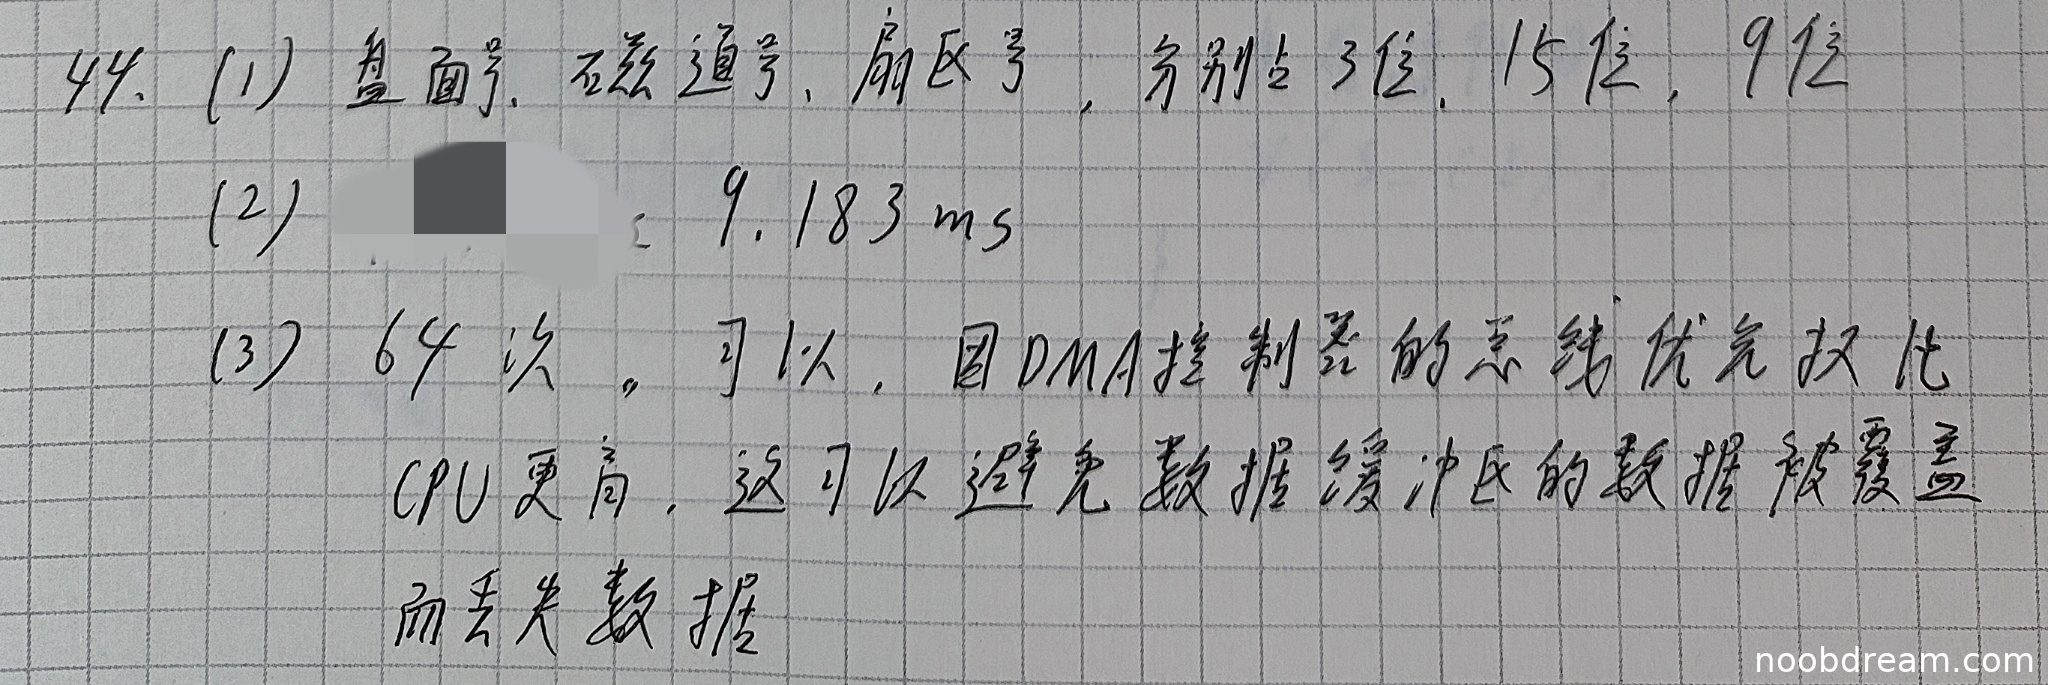 44. (1) 盘面号、磁道号、扇区号，分别占3位，15位，9位
(2) 9.183ms
(3) 64次。可以，因DMA控制器的总线优先权比
CPU更高，这可以避免数据缓冲区的数据被覆盖
而丢失数据
noobdream.com